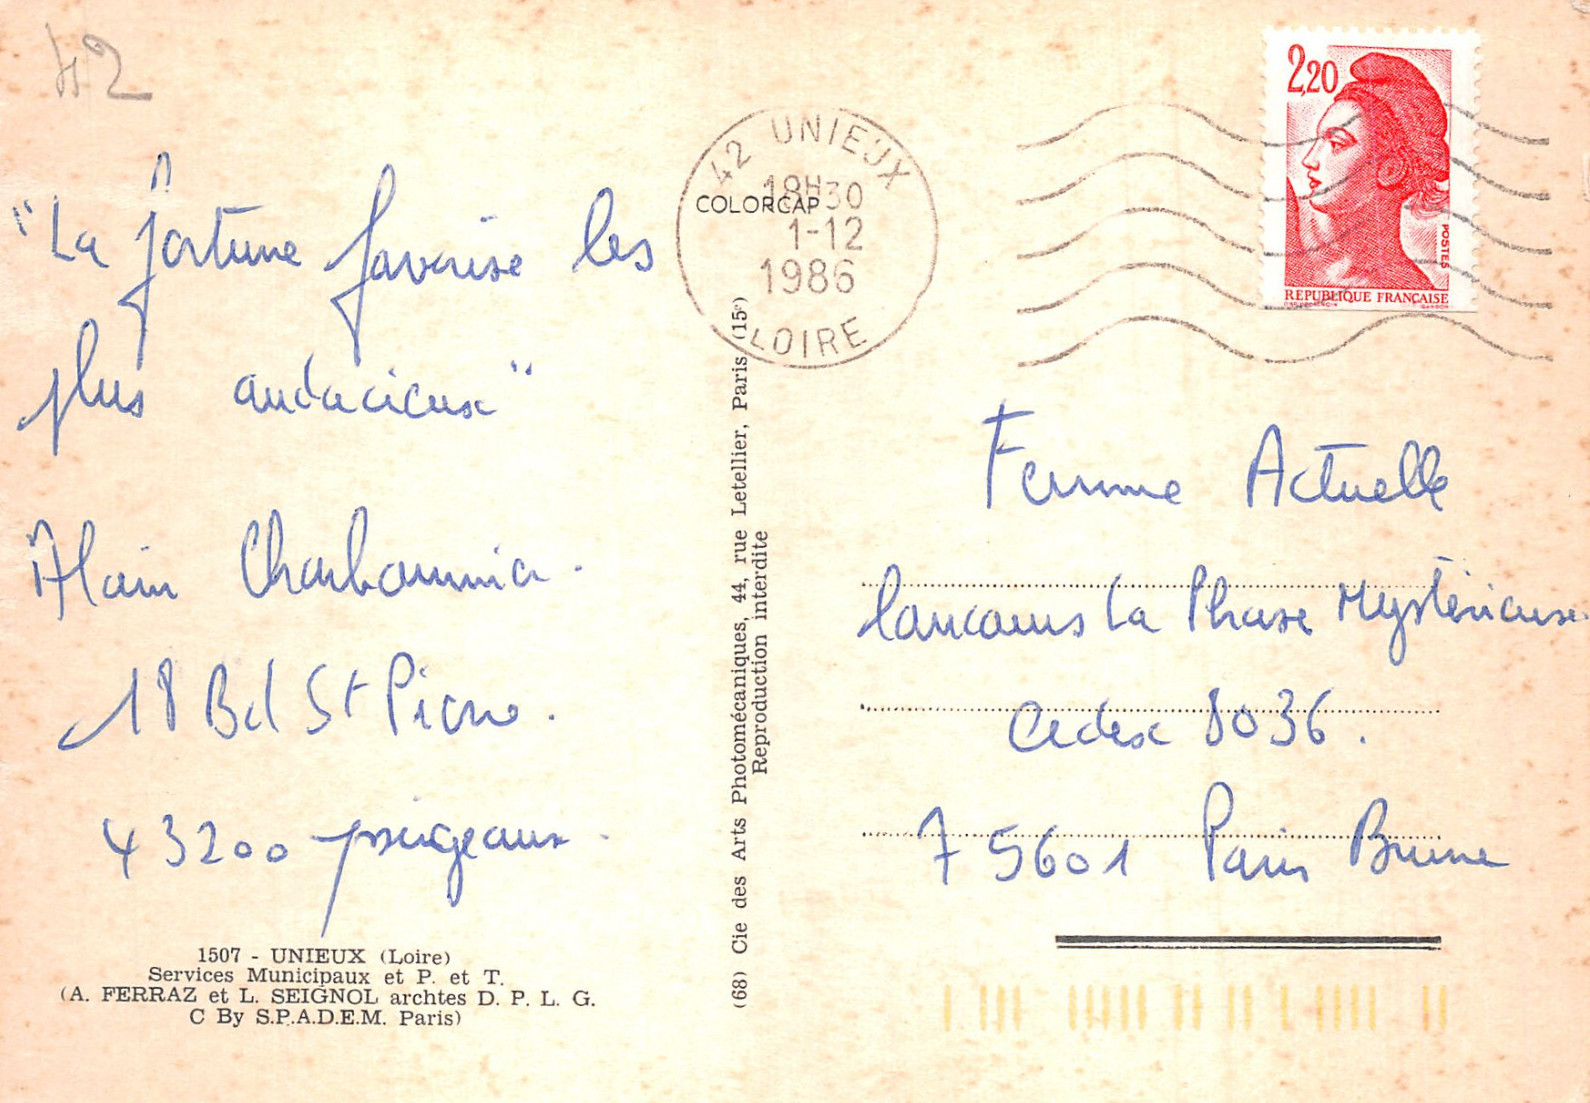 42
"La fortune favorise les
plus audacieux"
Alain Charbonnier.
18 Bd St Pierre.
43200 yssingeaux.
1507 - UNIEUX (Loire)
Services Municipaux et P. et T.
(A. FERRAZ et L. SEIGNOL archtes D. P. L. G.
C By S.P.A.D.E.M. Paris)
(68) Cie des Arts Photomécaniques, 44, rue Letellier, Paris (15e)
Reproduction interdite
COLORCAP
42 UNIEUX
18H30
1-12
1986
LOIRE
2,20
POSTES
REPUBLIQUE FRANÇAISE
Femme Actuelle
Concours La Phrase Mystérieuse
Cedex 8036.
75601 Paris Brune